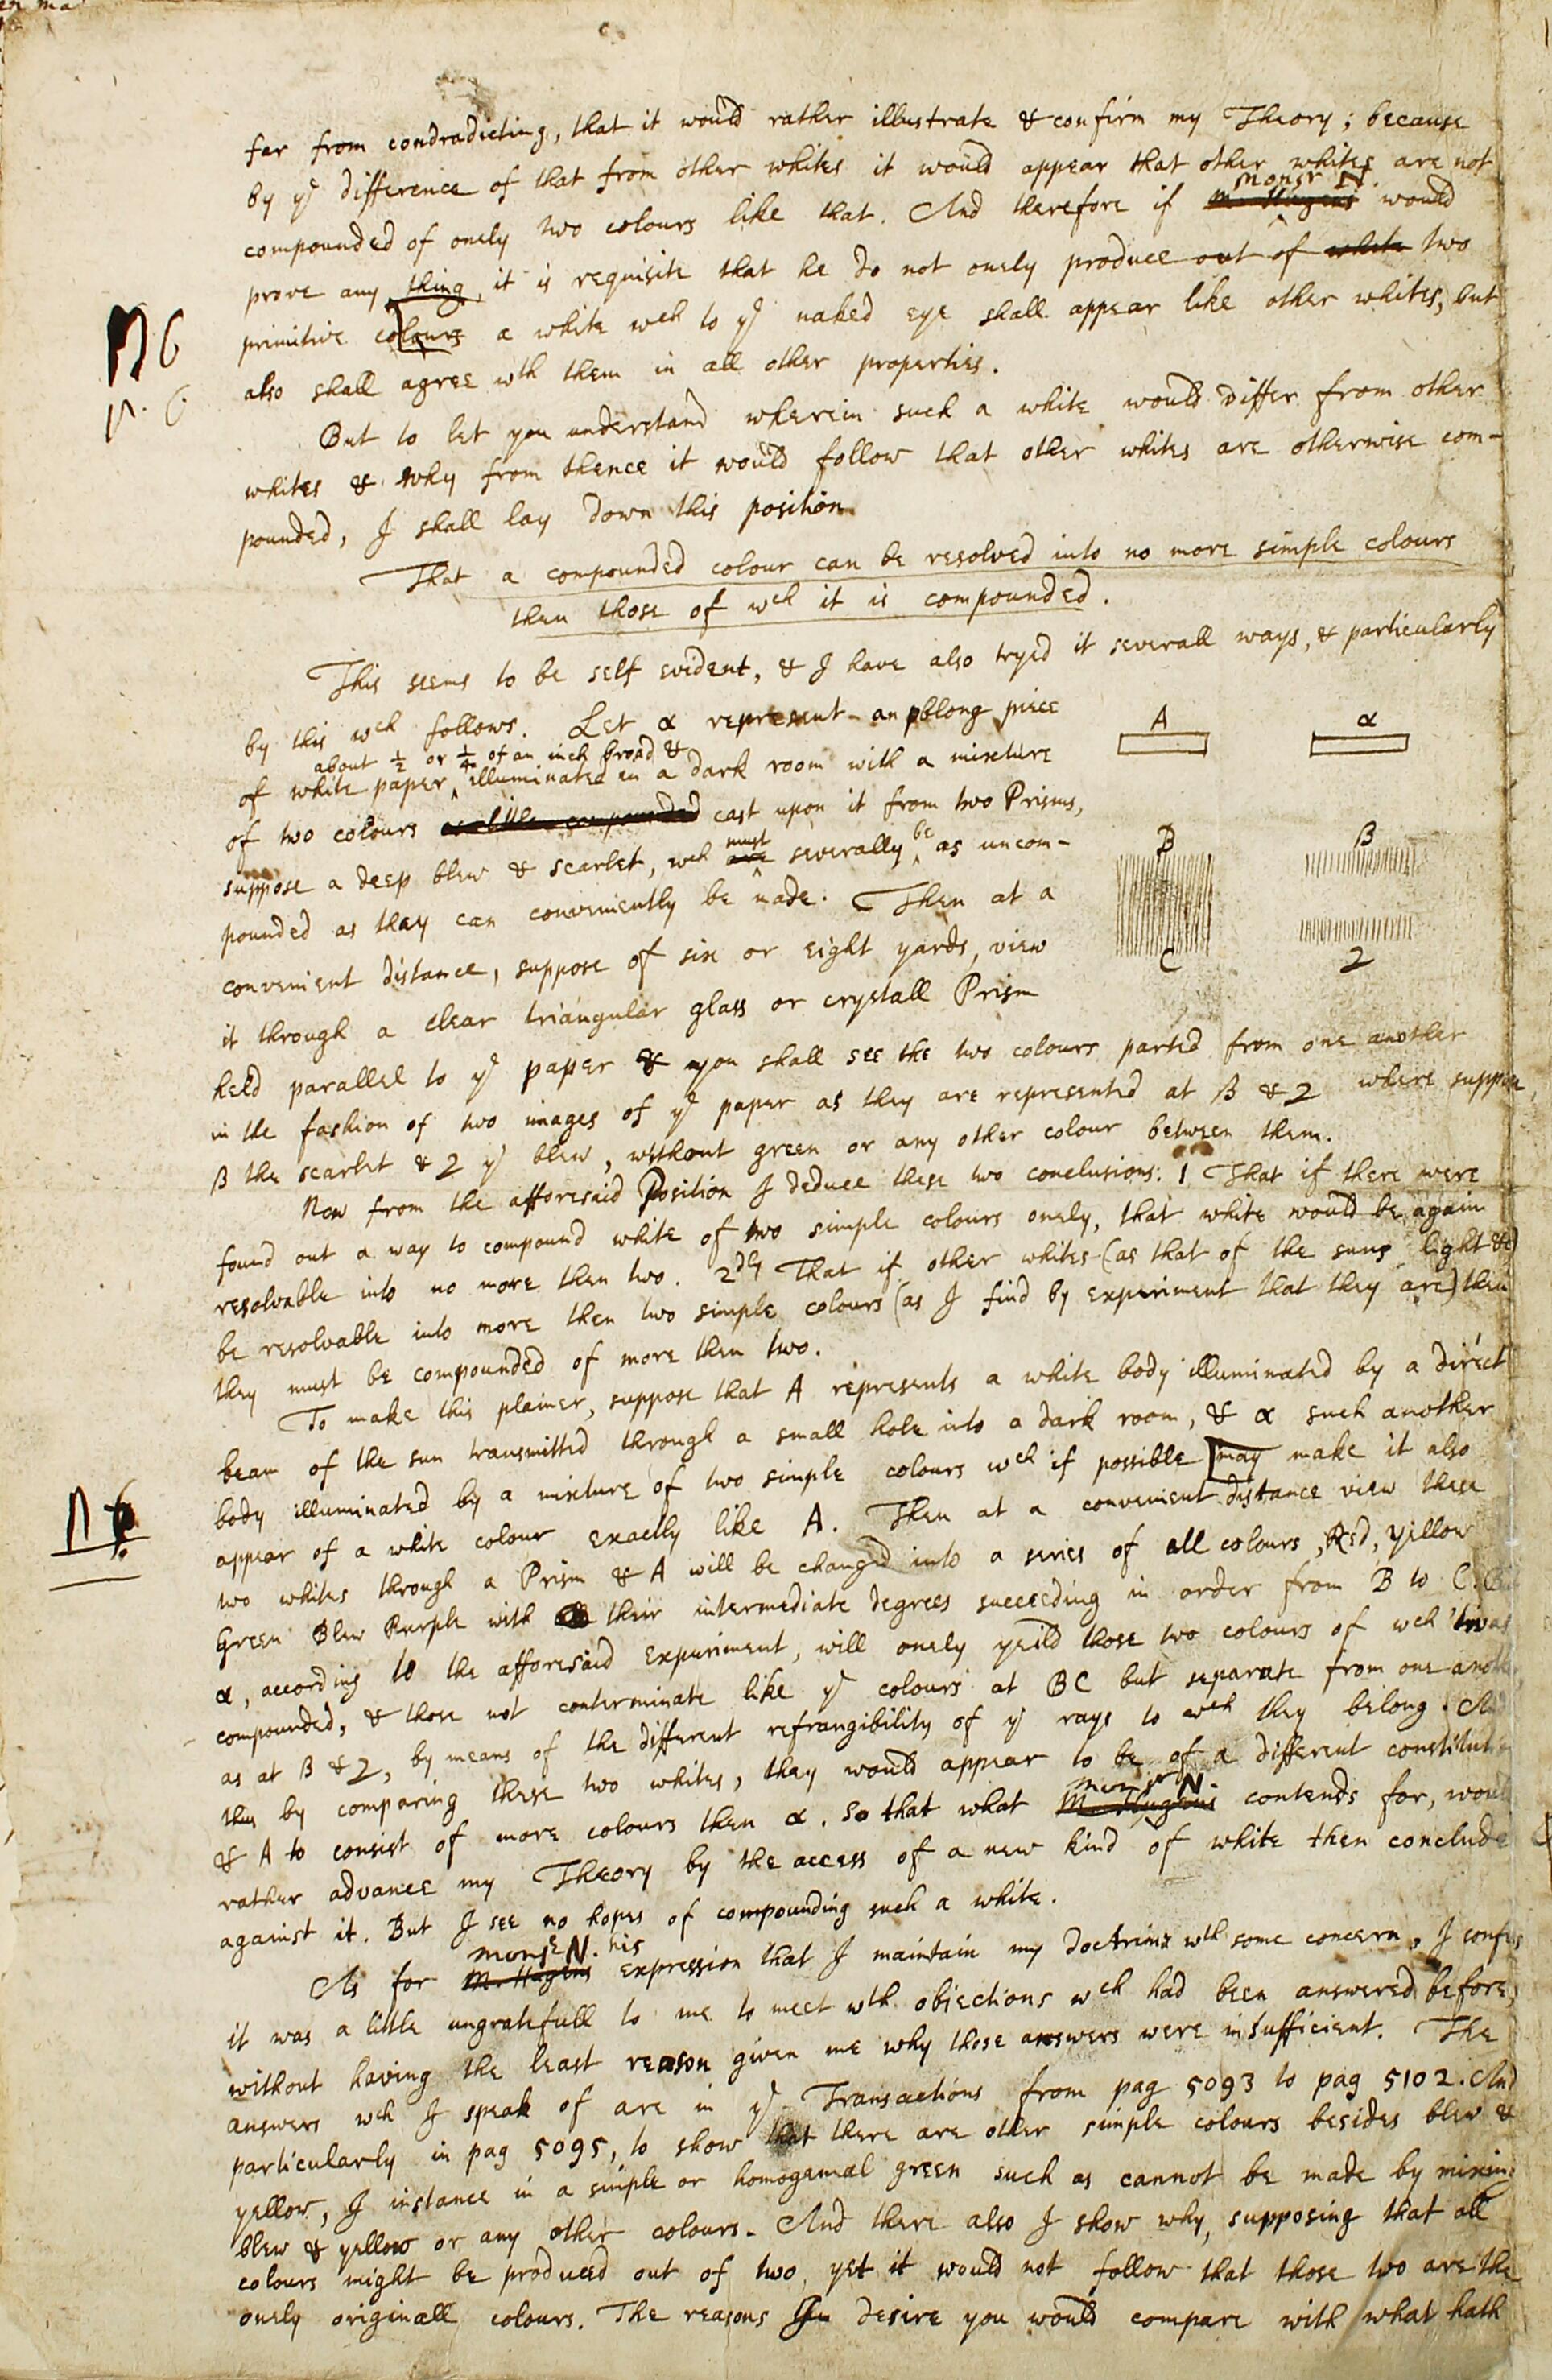 far from condradicting, that it would rather illustrate & confirm my Theory; because
by ye difference of that from other whites it would appear that other whites are not
Monsr N.
compounded of onely two colours like that. And therefore if Mr Hugens would
prove any thing, it is requisite that he do not onely produce out of white two
primitive colours a white wch to ye naked eye shall appear like other whites, but
also shall agree wth them in all other properties.
But to let you understand wherein such a white would differ from other
whites & why from thence it would follow that other whites are otherwise com-
pounded, I shall lay down this position
That a compounded colour can be resolved into no more simple colours
then those of wch it is compounded.
This seems to be self evident, & I have also tryed it severall ways, & particularly
by this wch follows. Let α represent an oblong piece
about 1/2 or 1/4 of an inch broad &
of white paper illuminated in a dark room with a mixture
of two colours as little compounded cast upon it from two Prisms,
must be
suppose a deep blew & scarlet, wch are severally as uncom-
pounded as they can conveniently be made. Then at a
convenient distance, suppose of six or eight yards, view
it through a clear triangular glass or crystall Prism
held parallel to ye paper & you shall see the two colours parted from one another
in the fashion of two images of ye paper as they are represented at β & 2 where suppose
β the scarlet & 2 ye blew, without green or any other colour between them.
A α
B β
C 2
Now from the afforesaid Position I deduce these two conclusions. 1 That if there were
found out a way to compound white of two simple colours onely, that white would be again
resolvable into no more then two. 2dly That if other whites (as that of the suns light &c)
be resolvable into more then two simple colours (as I find by experiment that they are) then
they must be compounded of more then two.
To make this plainer, suppose that A represents a white body illuminated by a direct
beam of the sun transmitted through a small hole into a dark room, & α such another
body illuminated by a mixture of two simple colours wch if possible may make it also
appear of a white colour exactly like A. Then at a convenient distance view these
two whites through a Prism & A will be changed into a series of all colours, Red, yellow
Green Blew Purple with their intermediate degrees succeeding in order from B to C. But
α, according to the afforesaid experiment, will onely yeild those two colours of wch twas
compounded, & those not conterminate like ye colours at BC but separate from one another
as at β & 2, by means of the different refrangibility of ye rays to wch they belong. And
thus by comparing these two whites, they would appear to be of a different constitution
Monsr N.
& A to consist of more colours then α. So that what Mr Hugens contends for, would
rather advance my Theory by the access of a new kind of white then conclude
against it. But I see no hopes of compounding such a white.
Monsr N. his
As for Mr Hugens expression that I maintain my doctrine wth some concern, I confess
it was a little ungratefull to me to meet wth objections wch had been answered before,
without having the least reason given me why those answers were insufficient. The
answers wch I speak of are in ye Transactions from pag 5093 to pag 5102. And
particularly in pag 5095, to show that there are other simple colours besides blew &
yellow, I instance in a simple or homogeneal green such as cannot be made by mixing
blew & yellow or any other colours. And there also I show why, supposing that all
colours might be produced out of two, yet it would not follow that those two are the
onely originall colours. The reasons I desire you would compare with what hath